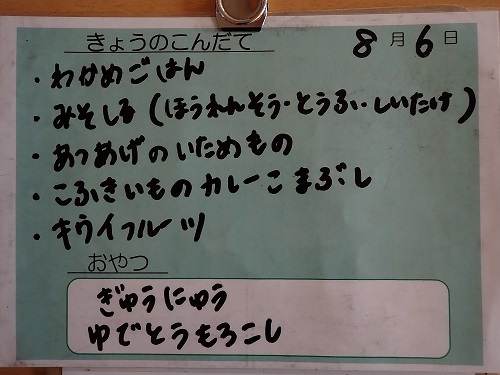 きょうのこんだて 8月6日
・わかめごはん
・みそしる(ほうれんそう・とうふ・しいたけ)
・あつあげのいためもの
・こふきいものカレーこまぶし
・キウイフルーツ
おやつ
ぎゅうにゅう
ゆでとうもろこし